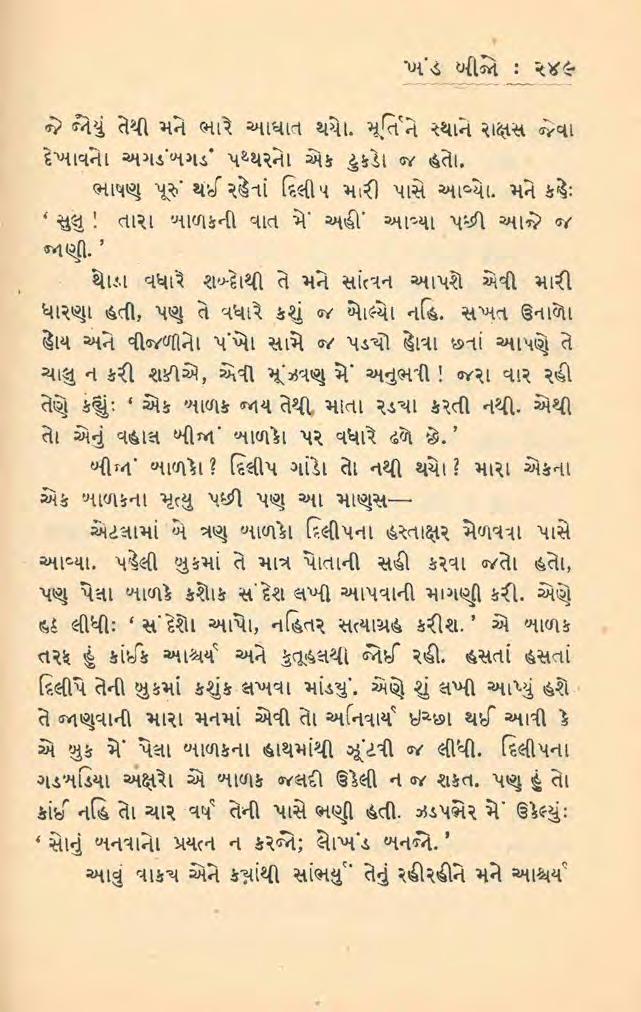 ખંડ બીજો : ૨૪૯
જે જોયું તેથી મને ભારે આઘાત થયો. મૂર્તિને સ્થાને રાક્ષસ જેવા
દેખાવનો અગડંબગડં પથ્થરનો એક ટુકડો જ હતો.
ભાષણ પૂરું થઈ રહેતાં દિલીપ મારી પાસે આવ્યો. મને કહે:
‘ સુલુ ! તારા બાળકની વાત મેં અહીં આવ્યા પછી આજે જ
જાણી. ’
થોડા વધારે શબ્દોથી તે મને સાંત્વન આપશે એવી મારી
ધારણા હતી, પણ તે વધારે કશું જ બોલ્યો નહિ. સખત ઉનાળો
હોય અને વીજળીનો પંખો સામે જ પડ્યો હોવા છતાં આપણે તે
ચાલુ ન કરી શકીએ, એવી મૂંઝવણ મેં અનુભવી ! જરા વાર રહી
તેણે કહ્યું: ‘ એક બાળક જાય તેથી માતા રડ્યા કરતી નથી. એથી
તો એનું વહાલ બીજાં બાળકો પર વધારે ઢળે છે. ’
બીજાં બાળકો ? દિલીપ ગાંડો તો નથી થયો ? મારા એકના
એક બાળકના મૃત્યુ પછી પણ આ માણસ—
એટલામાં બે ત્રણ બાળકો દિલીપના હસ્તાક્ષર મેળવવા પાસે
આવ્યા. પહેલી બુકમાં તે માત્ર પોતાની સહી કરવા જતો હતો,
પણ પેલા બાળકે કશોક સંદેશ લખી આપવાની માગણી કરી. એણે
હઠ લીધી: ‘ સંદેશો આપો, નહિતર સત્યાગ્રહ કરીશ. ’ એ બાળક
તરફ હું કાંઈક આશ્ચર્ય અને કુતૂહલથી જોઈ રહી. હસતાં હસતાં
દિલીપે તેની બુકમાં કશુંક લખવા માંડ્યું. એણે શું લખી આપ્યું હશે
તે જાણવાની મારા મનમાં એવી તો અનિવાર્ય ઇચ્છા થઈ આવી કે
એ બુક મેં પેલા બાળકના હાથમાંથી ઝૂંટવી જ લીધી. દિલીપના
ગડબડિયા અક્ષરો એ બાળક જલદી ઉકેલી ન જ શકત. પણ હું તો
કાંઈ નહિ તો ચાર વર્ષ તેની પાસે ભણી હતી. ઝડપભેર મેં ઉકેલ્યું:
‘ સોનું બનવાનો પ્રયત્ન ન કરજો; લોખંડ બનજો. ’
આવું વાક્ય એને ક્યાંથી સાંભર્યું તેનું રહીરહીને મને આશ્ચર્ય